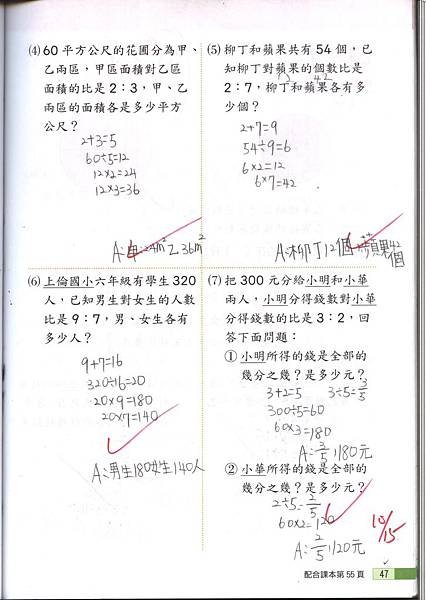 (4) 60 平方公尺的花圃分為甲、
乙兩區，甲區面積對乙區
面積的比是 2：3，甲、乙
兩區的面積各是多少平方
公尺？
2+3=5
60÷5=12
12×2=24
12×3=36
A:甲:24m² 乙36m²
(5) 柳丁和蘋果共有 54 個，已
知柳丁對蘋果的個數比是
2：7，柳丁和蘋果各有多
少個？
12 42
2+7=9
54÷9=6
6×2=12
6×7=42
A:柳丁12個 蘋果42個
(6) 上倫國小六年級有學生 320
人，已知男生對女生的人數
比是 9：7，男、女生各有
多少人？
9+7=16
320÷16=20
20×9=180
20×7=140
A:男生180女生140人
(7) 把 300 元分給小明和小華
兩人，小明分得錢數對小華
分得錢數的比是 3：2，回
答下面問題：
① 小明所得的錢是全部的
幾分之幾？是多少元？
3+2=5 3÷5=3/5
300÷5=60
60×3=180
A:3/5,180元
② 小華所得的錢是全部的
幾分之幾？是多少元？
2÷5=2/5
60×2=120
A:2/5,120元
10/15
配合課本第 55 頁
47